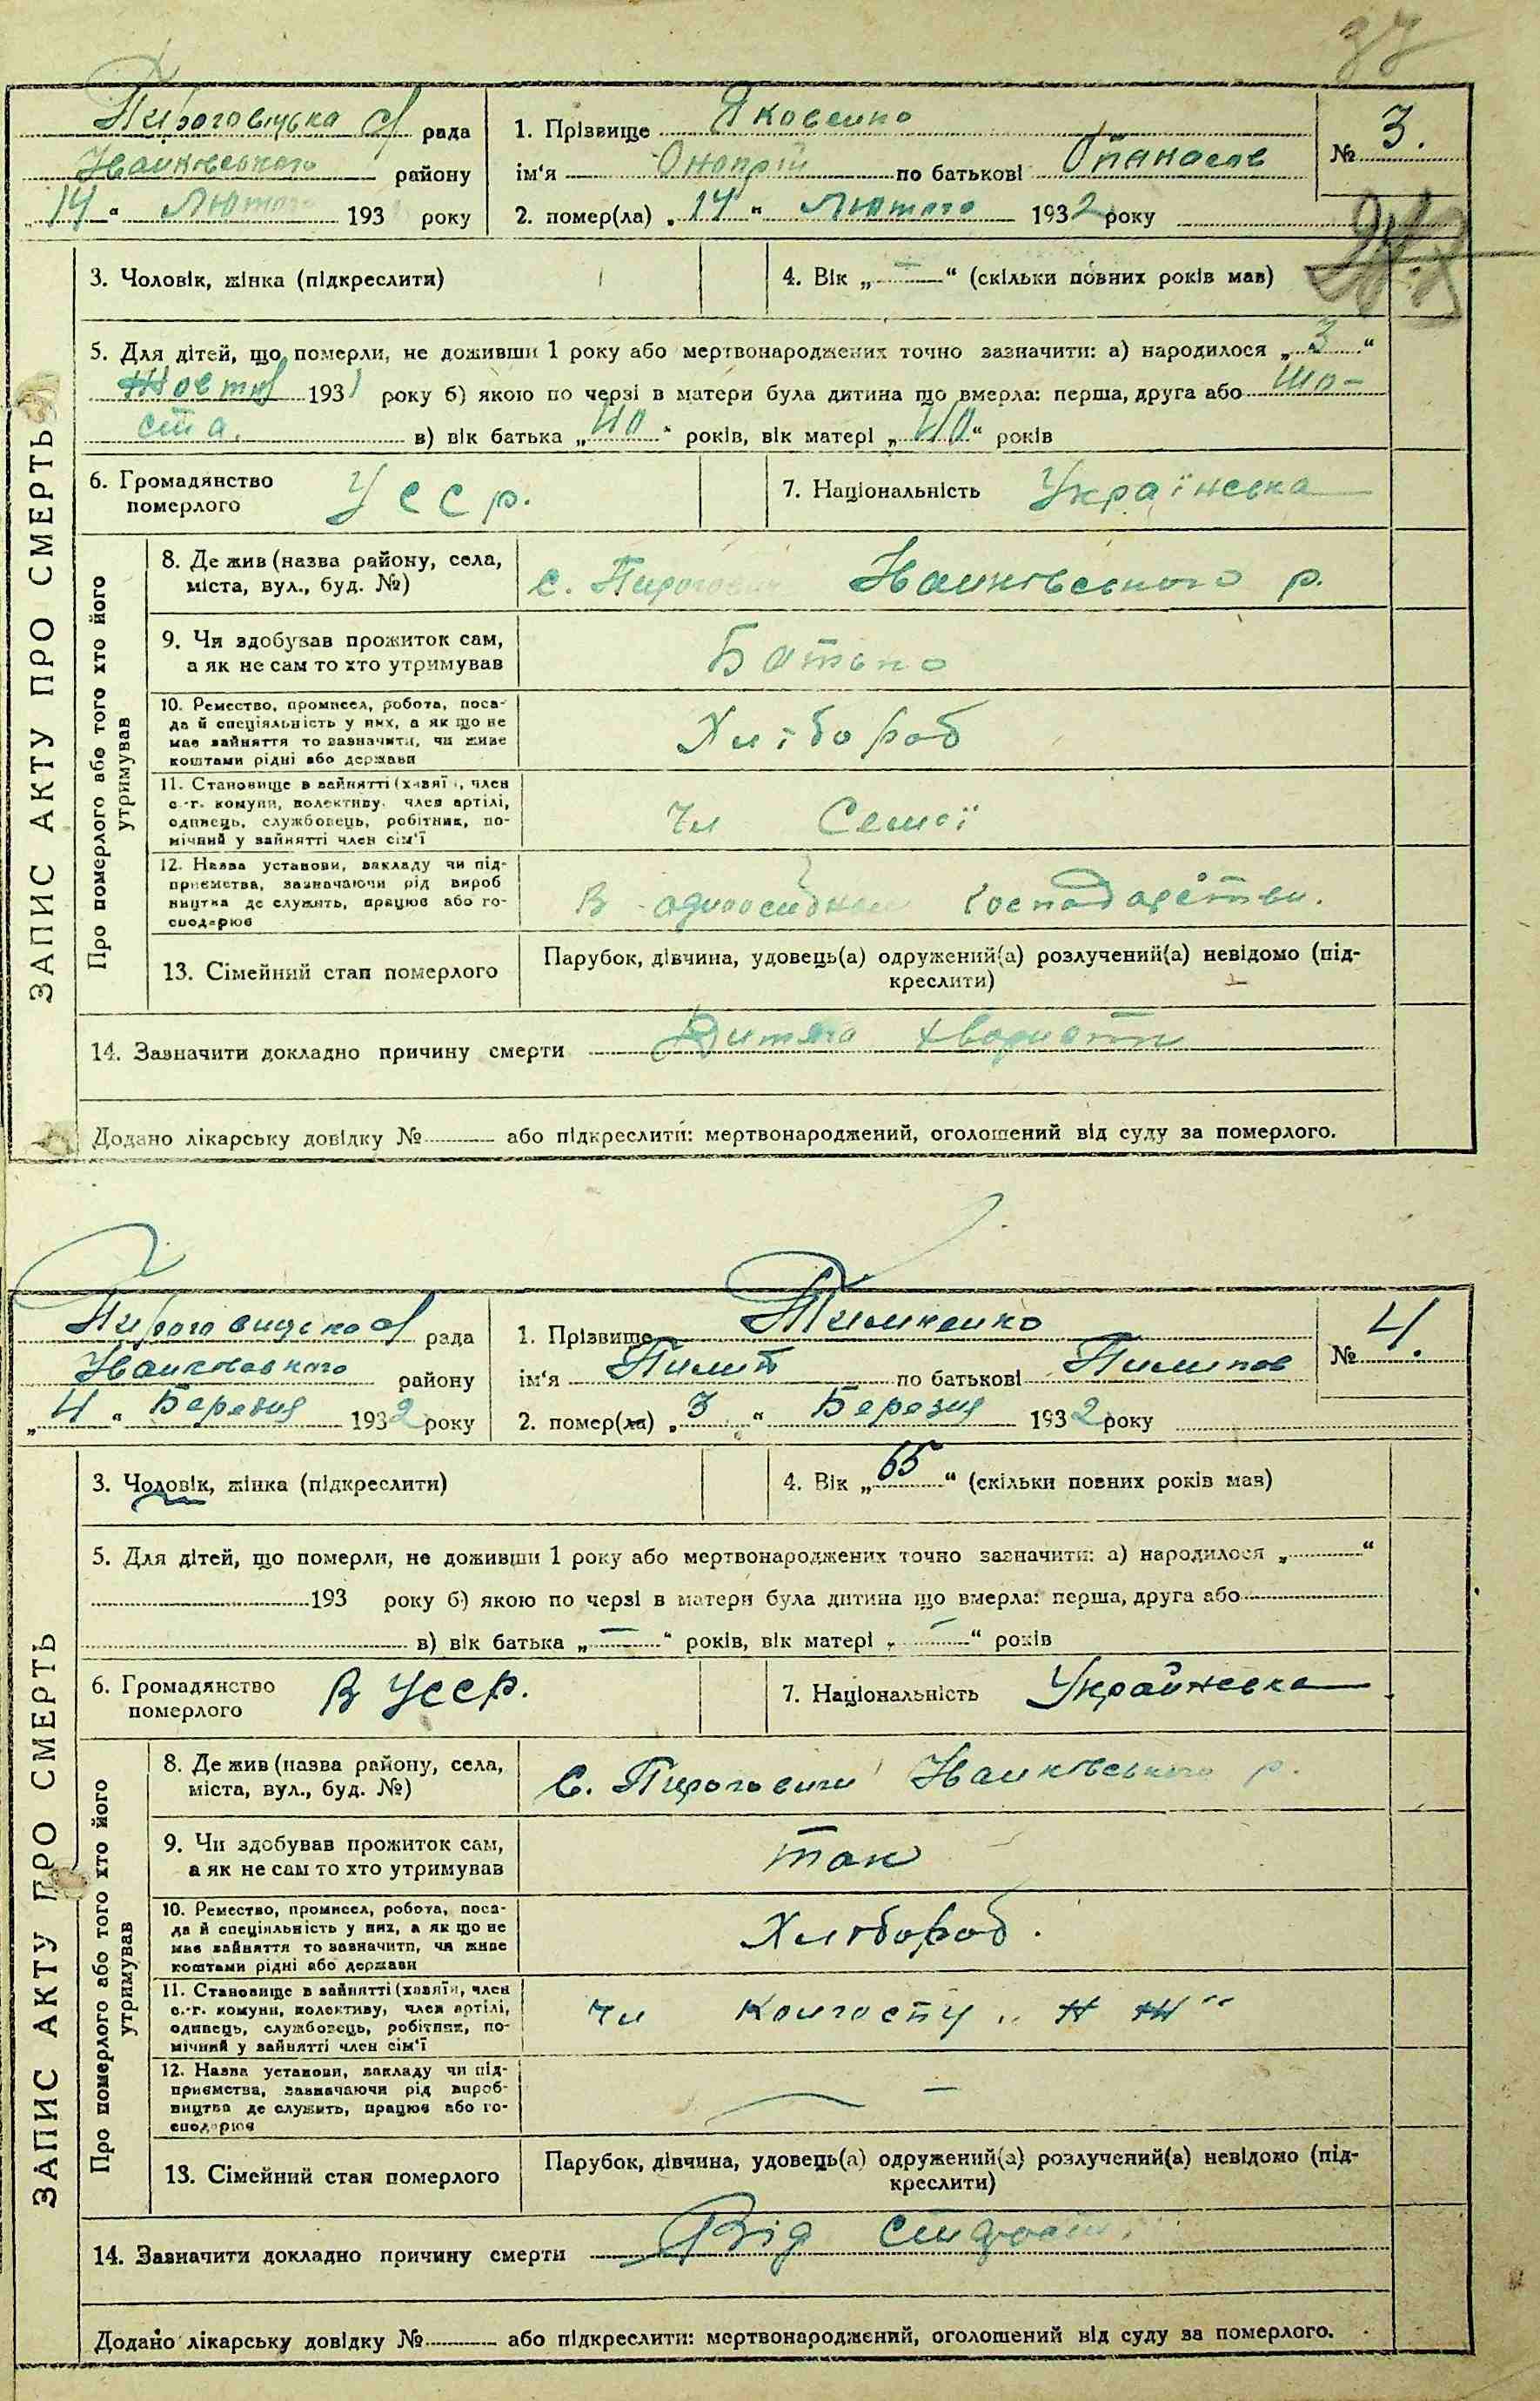 37
Пироговицька с/ рада
Іванківського району
„14 “ Лютого 193 року
1. Прізвище Яковенко
ім‘я Онопрій по батькові Опанасов
2. помер(ла) „14 “ Лютого 1932 року
№ 3.
3. Чоловік, жінка (підкреслити)
4. Вік „ — “ (скільки повних років мав)
5. Для дітей, що померли, не доживши 1 року або мертвонароджених точно зазначити: а) народилося „ 3 “
Жовтня 1931 року б) якою по черзі в матери була дитина що вмерла: перша, друга або шо-
ста. в) вік батька „ 40 “ років, вік матері „ 40 “ років
6. Громадянство
померлого
Уссp.
7. Національність Українська
ЗАПИС АКТУ ПРО СМЕРТЬ
Про померлого або того хто його
утримував
8. Де жив (назва району, села,
міста, вул., буд. №)
с. Пирогович Іванківського р.
9. Чи здобував прожиток сам,
а як не сам то хто утримував
Батько
10. Ремество, промисел, робота, поса-
да й спеціяльність у них, а як що не
має зайняття то зазначити, чи живе
коштами рідні або держави
Хлібороб
11. Становище в зайнятті (хазяїн, член
с.-г. комуни, колективу, член артілі,
одинець, службовець, робітник, по-
мічний у зайнятті член сім‘ї
Чл Семєї
12. Назва установи, закладу чи під-
приємства, зазначаючи рід вироб
ництва де служить, працює або го-
сподарює
В одноосібном господарстви.
13. Сімейний стан померлого
Парубок, дівчина, удовець(а) одружений(а) розлучений(а) невідомо (під-
креслити)
14. Зазначити докладно причину смерти Дитяча
Додано лікарську довідку № або підкреслити: мертвонароджений, оголошений від суду за померлого.
Пироговицька с/ рада
Іванківського району
„ 4 “ Березня 1932 року
1. Прізвище Тимченко
ім‘я Пилип по батькові Пилипов
2. помер(ла) „ 3 “ Березня 1932 року
№ 4.
3. Чоловік, жінка (підкреслити)
4. Вік „ 65 “ (скільки повних років мав)
5. Для дітей, що померли, не доживши 1 року або мертвонароджених точно зазначити: а) народилося „ “
193 року б) якою по черзі в матери була дитина що вмерла: перша, друга або
в) вік батька „ — “ років, вік матері „ — “ років
6. Громадянство
померлого
В Усср.
7. Національність Украйнська
ЗАПИС АКТУ ПРО СМЕРТЬ
Про померлого або того хто його
утримував
8. Де жив (назва району, села,
міста, вул., буд. №)
С. Пироговичи Іванківського р.
9. Чи здобував прожиток сам,
а як не сам то хто утримував
так
10. Ремество, промисел, робота, поса-
да й спеціяльність у них, а як що не
має зайняття то зазначити, чи живе
коштами рідні або держави
Хлібороб.
11. Становище в зайнятті (хазяїн, член
с.-г. комуни, колективу, член артілі,
одинець, службовець, робітник, по-
мічний у зайнятті член сім‘ї
Чл Колгоспу „Н Ж“
12. Назва установи, закладу чи під-
приємства, зазначаючи рід вироб-
ництва де служить, працює або го-
сподарює
—
13. Сімейний стан померлого
Парубок, дівчина, удовець(а) одружений(а) розлучений(а) невідомо (під-
креслити)
14. Зазначити докладно причину смерти Від старости
Додано лікарську довідку № або підкреслити: мертвонароджений, оголошений від суду за померлого.